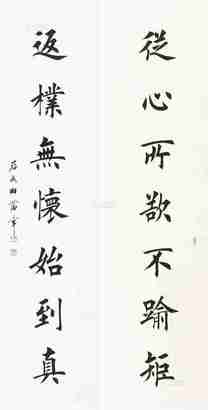 從心所欲不踰矩
返樸無懷始到真